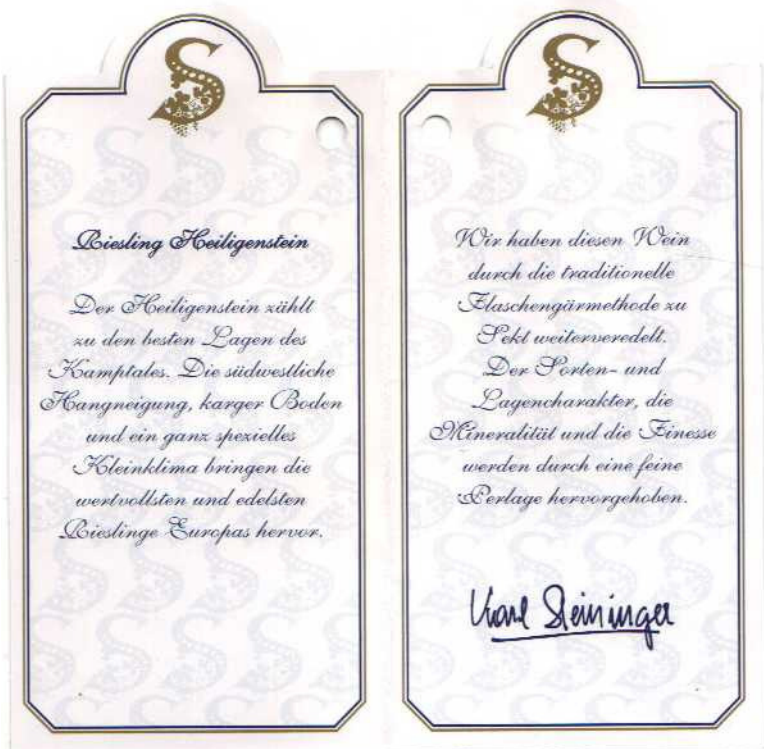 Riesling Heiligenstein
Der Heiligenstein zählt
zu den besten Lagen des
Kamptales. Die südwestliche
Hangneigung, karger Boden
und ein ganz spezielles
Kleinklima bringen die
wertvollsten und edelsten
Rieslinge Europas hervor.
Wir haben diesen Wein
durch die traditionelle
Flaschengärmethode zu
Sekt weiterveredelt.
Der Sorten- und
Lagencharakter, die
Mineralität und die Finesse
werden durch eine feine
Perlage hervorgehoben.
Karl Steininger